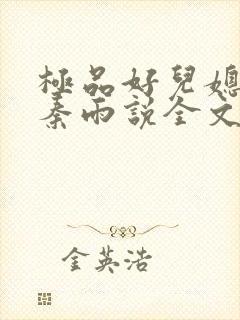 極品好兒媳
秦雨說全文
金英浩